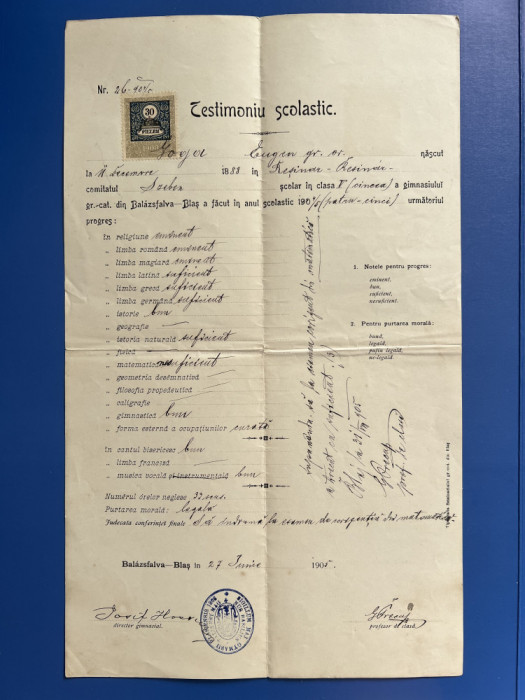 Nr. 26-904/5
30
FILLÉR
Testimoniu școlastic.
Goga Eugen gr. or. născut
la 11. Decemvre 1888 in Reșinar-Resinár-
comitatul școlar în clasa V (cincea) a gimnasiului
gr.-cat. din Balázsfalva-Blaș a făcut în anul scolastic 1904/5 (patru-cinci) următoriul
progres:
în religiune eminent
„ limba română eminent
„ limba magiară eminent
„ limba latină suficient
„ limba grecă suficient
„ limba germână suficient
„ istorie bun
„ geografie —
„ istoria naturală suficient
„ fisică —
„ matematică nesuficient
„ geometria desemnativă —
„ filosofia propedeutică —
„ caligrafie —
„ gimnastică bun
„ forma esternă a ocupațiunilor curată
în cantul bisericesc bun
„ limba francesă —
„ musica vocală și instrumentală bun
Numărul órelor neglese 32 scus.
Purtarea morală: legală
Judecata conferinței finale: Să îndrumă la examen de corepția din matematică.
1. Notele pentru progres:
eminent,
bun,
suficient,
nesuficient.
2. Pentru purtarea morală:
bună,
legală,
puțin legală,
ne-legală.
la examen de corigent din matematică
suficient (3)
Blaj la 31/VIII 905
GPrecup
prof. de clasă
Balázsfalva-Blaș în 27 Iunie 1905.
Iosif
director gimnasial.
GPrecup
profesor de clasă.